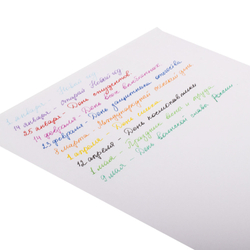 1 января - Новый год
14 января - старый Новый год
25 января - День студентов
14 февраля - День всех влюблённых
23 февраля - День защитника отечества
8 марта - Международный женский день
1 апреля - День смеха
12 апреля - День космонавтики
1 мая - Праздник весны и труда
9 мая - День